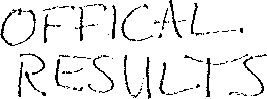 OFFICAL
RESULTS